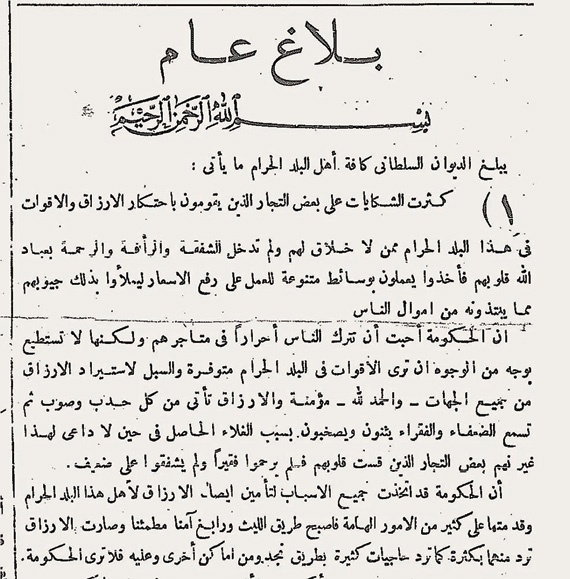 بلاغ عام
بسم الله الرحمن الرحيم
يبلغ الديوان السلطانى كافة أهل البلد الحرام ما يأتى :
١) كثرت الشكايات على بعض التجار الذين يقومون باحتكار الارزاق والاقوات
فى هذا البلد الحرام ممن لا خلاق لهم ولم تدخل الشفقة والرأفة والرحمة بعباد
الله قلوبهم فأخذوا يعملون بوسائط متنوعة للعمل على رفع الاسعار ليملأوا بذلك جيوبهم
مما يبتذونه من اموال الناس
ان الحكومة أحبت أن تترك الناس أحراراً فى متاجرهم ولكنها لا تستطيع
بوجه من الوجوه ان ترى الاقوات فى البلد الحرام متوفرة والسبل لاستيراد الارزاق
من جميع الجهات ــ والحمد لله ــ مؤمنة والارزاق تأتى من كل حدب وصوب ثم
تسمع الضعفاء والفقراء يئنون ويصخبون بسبب الغلاء الحاصل فى حين لا داعى لهذا
غير نهم بعض التجار الذين قست قلوبهم فلم يرحموا فقيراً ولم يشفقوا على ضعيف.
أن الحكومة قد اتخذت جميع الاسباب لتأمين ايصال الارزاق لأهل هذا البلد الحرام
وقدمتها على كثير من الامور الهامة فاصبح طريق الليث ورابغ آمنا مطمئنا وصارت الارزاق
ترد منهما بكثرة كما ترد حاجيات كثيرة بطريق نجد ومن اماكن أخرى وعليه فلا ترى الحكومة.